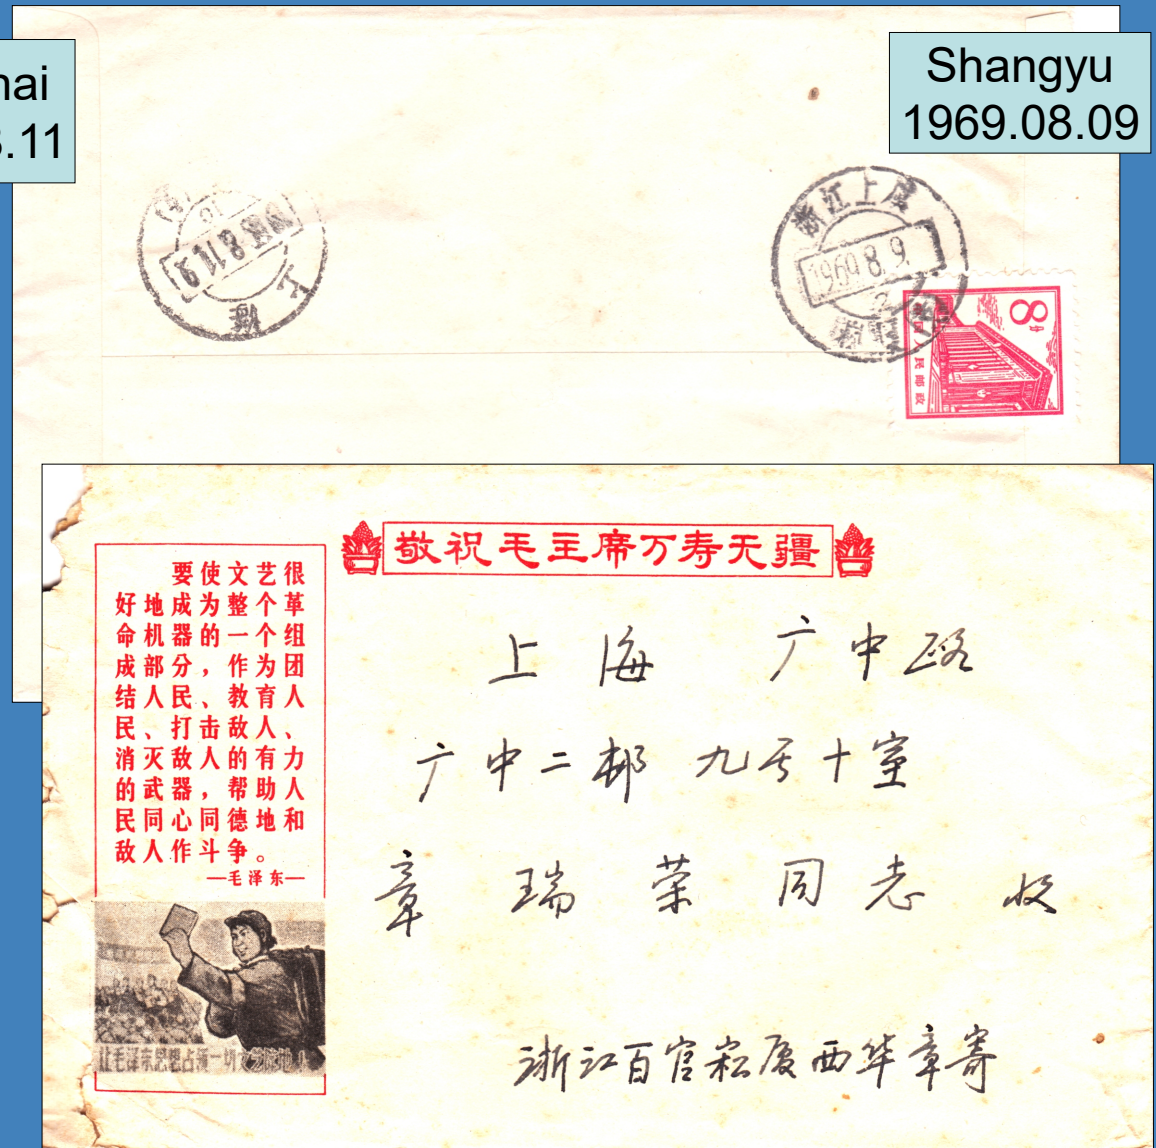 hai
8.11
Shangyu
1969.08.09
浙江上虞
1969.8.9.
上海
8
中国人民邮政
敬祝毛主席万寿无疆
要使文艺很
好地成为整个革
命机器的一个组
成部分，作为团
结人民、教育人
民、打击敌人、
消灭敌人的有力
的武器，帮助人
民同心同德地和
敌人作斗争。
—毛泽东—
让毛泽东思想占领一切文艺阵地
上海 广中路
广中二邨 九号十室
章瑞荣同志 收
浙江百官崧厦西华章寄